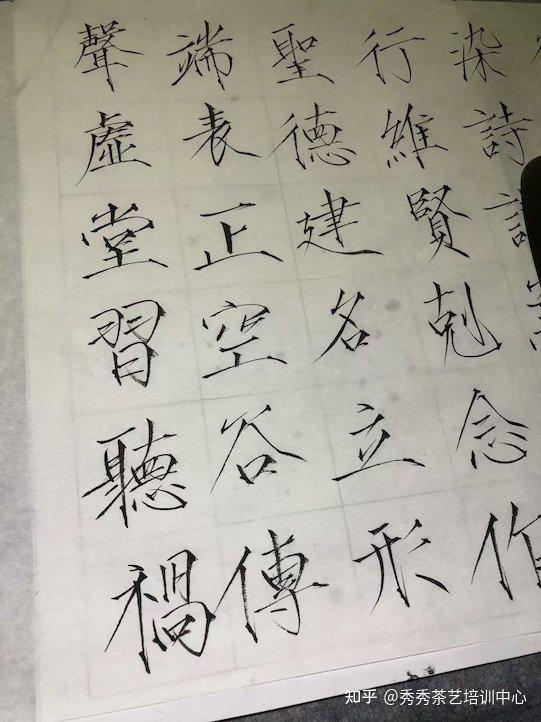 染詩
行維賢剋念作
聖德建名立形
端表正空谷傳
聲虛堂習聽禍
知乎 @秀秀茶艺培训中心